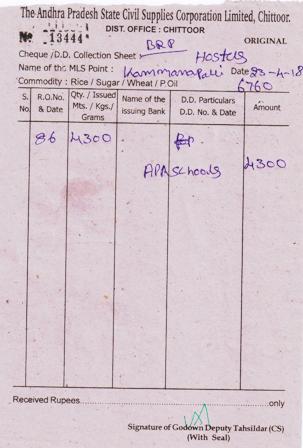 The Andhra Pradesh State Civil Supplies Corporation Limited, Chittoor.
DIST. OFFICE : CHITTOOR
№ 13444 ORIGINAL
Cheque /D.D. Collection Sheet : Hostels
Name of the MLS Point : Kammanapalli Date 23-4-18
Commodity : Rice / Sugar / Wheat / P.Oil 6760
S. No. R.O.No. & Date Qty. / Issued Mts. / Kgs./ Grams Name of the issuing Bank D.D. Particulars D.D. No. & Date Amount
86 4300
APRSchools 4300
Received Rupees only
Signature of Godown Deputy Tahsildar (CS)
(With Seal)